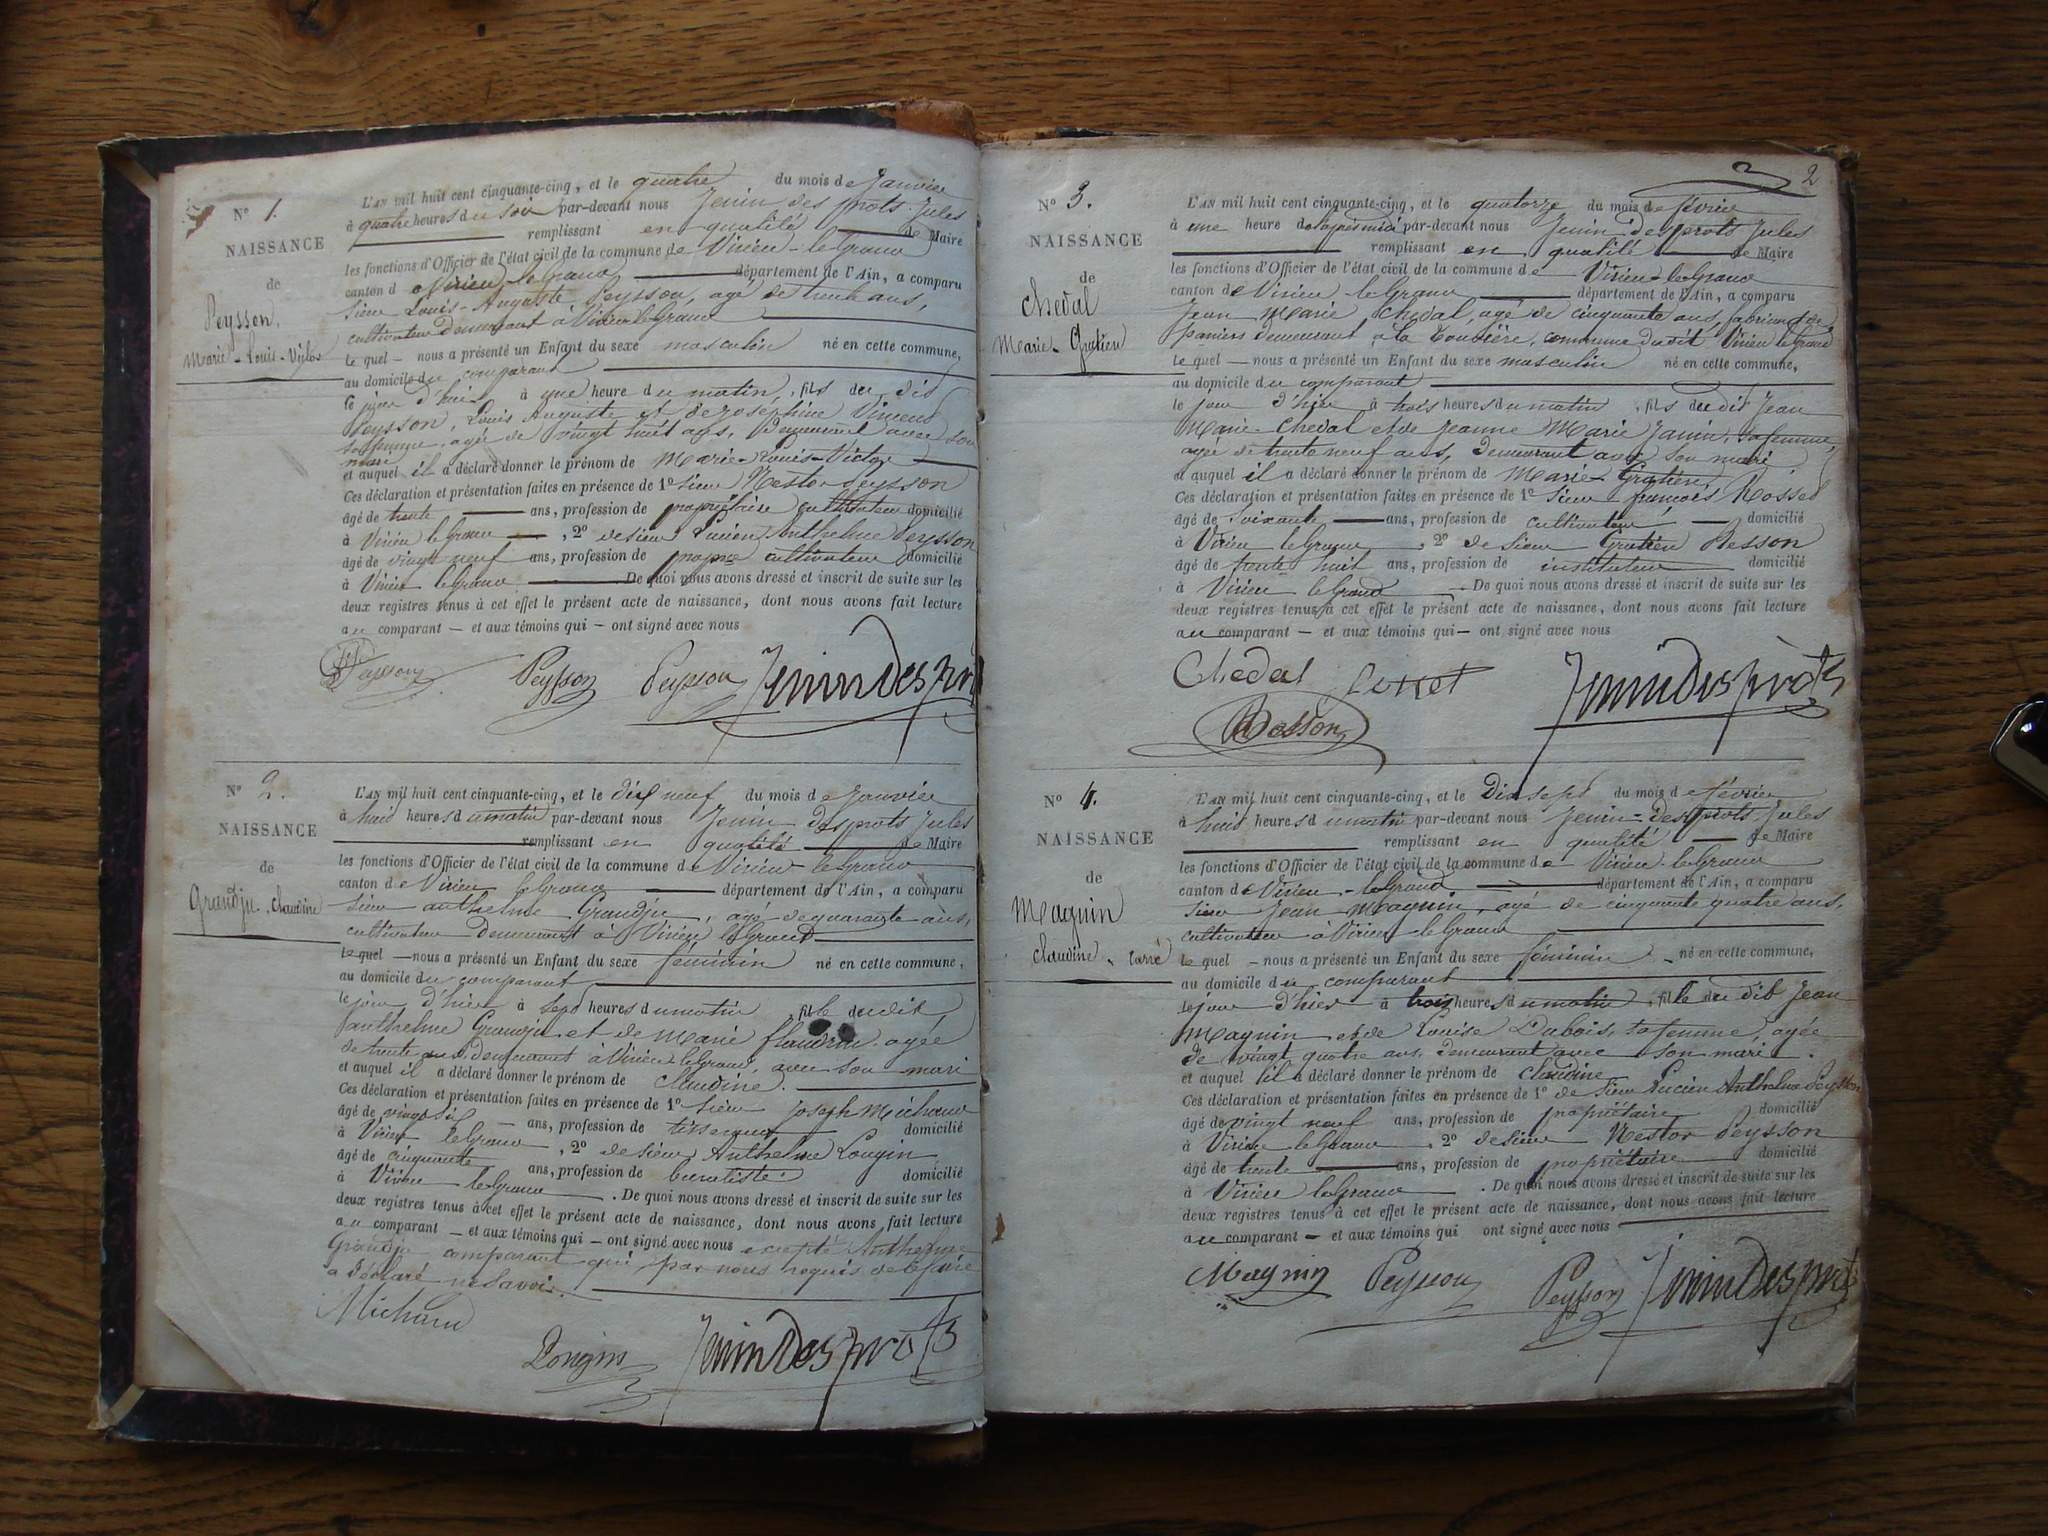 N° 1.
NAISSANCE
de
Peysson,
Marie-Louis-Victor
L'AN mil huit cent cinquante-cinq, et le quatre du mois de Janvier
à quatre heures du soir par-devant nous Jenin des prots Jules
remplissant en qualité de Maire
les fonctions d'Officier de l'état civil de la commune de Virieu-le-Grand
canton de Virieu le Grand département de l'Ain, a comparu
Sieur Louis-Auguste Peysson, agé de trente ans,
cultivateur demeurant à Virieu le Grand
le quel nous a présenté un Enfant du sexe masculin né en cette commune,
au domicile du comparant
le jour d'hier à une heure du matin, fils du dit
Peysson, Louis Auguste et de Joséphine Vincent
sa femme, agée de vingt huit ans, demeurant avec son
mari
et auquel il a déclaré donner le prénom de Marie-Louis-Victor
Ces déclaration et présentation faites en présence de 1° Sieur Nestor Peysson
âgé de trente ans, profession de propriétaire cultivateur domicilié
à Virieu le Grand, 2° de Sieur Lucien Anthelme Peysson
âgé de vingt neuf ans, profession de cultivateur domicilié
à Virieu le Grand De quoi nous avons dressé et inscrit de suite sur les
deux registres tenus à cet effet le présent acte de naissance, dont nous avons fait lecture
au comparant et aux témoins qui ont signé avec nous
Peysson Peysson Peysson Jenin Des prots
N° 2.
NAISSANCE
de
Grandju, Claudine
L'AN mil huit cent cinquante-cinq, et le dix neuf du mois de Janvier
à huit heures du matin par-devant nous Jenin des prots Jules
remplissant en qualité de Maire
les fonctions d'Officier de l'état civil de la commune de Virieu-le-Grand
canton de Virieu le Grand département de l'Ain, a comparu
Sieur anthelme Grandju, agé de quarante ans,
cultivateur demeurant à Virieu le Grand
le quel nous a présenté un Enfant du sexe féminin né en cette commune,
au domicile du comparant
le jour d'hier à sept heures du matin, fille du dit
anthelme Grandju et de Marie flaudrin agée
de trente demeurant à Virieu le Grand, avec son mari
et auquel il a déclaré donner le prénom de Claudine.
Ces déclaration et présentation faites en présence de 1° Sieur Joseph Michaud
âgé de vingt six ans, profession de tisserand domicilié
à Virieu le Grand, 2° de Sieur Anthelme Longin
âgé de cinquante ans, profession de buraliste domicilié
à Virieu le Grand. De quoi nous avons dressé et inscrit de suite sur les
deux registres tenus à cet effet le présent acte de naissance, dont nous avons fait lecture
au comparant et aux témoins qui ont signé avec nous excepté Anthelme
Grandju comparant qui par nous requis de le faire
a déclaré ne savoir.
Michaud
Longin Jenin Des prots
2
N° 3.
NAISSANCE
de
Chedal
Marie-Gratien
L'AN mil huit cent cinquante-cinq, et le quatorze du mois de février
à une heure de l'après midi par-devant nous Jenin des prots Jules
remplissant en qualité de Maire
les fonctions d'Officier de l'état civil de la commune de Virieu-le-Grand
canton de Virieu-le Grand département de l'Ain, a comparu
Jean Marie Chedal, agé de cinquante ans, fabricant de
paniers demeurant à la commune dudit Virieu le Grand
le quel nous a présenté un Enfant du sexe masculin né en cette commune,
au domicile du comparant
le jour d'hier à trois heures du matin, fils du dit Jean
Marie Chedal et de Jeanne Marie Janin, sa femme,
agée de trente neuf ans, demeurant avec son mari
et auquel il a déclaré donner le prénom de Marie-Gratien.
Ces déclaration et présentation faites en présence de 1° Sieur françois Rosset
âgé de soixante ans, profession de cultivateur domicilié
à Virieu le Grand, 2° de Sieur Gratien Besson
âgé de trente huit ans, profession de instituteur domicilié
à Virieu le Grand. De quoi nous avons dressé et inscrit de suite sur les
deux registres tenus à cet effet le présent acte de naissance, dont nous avons fait lecture
au comparant et aux témoins qui ont signé avec nous
Chedal Rosset Jenin Des prots
Besson
N° 4.
NAISSANCE
de
Magnin
Claudine
L'AN mil huit cent cinquante-cinq, et le Dix sept du mois de février
à huit heures du matin par-devant nous Jenin-Des prots Jules
remplissant en qualité de Maire
les fonctions d'Officier de l'état civil de la commune de Virieu-le Grand
canton de Virieu-le Grand département de l'Ain, a comparu
Sieur Jean Magnin, agé de cinquante quatre ans,
cultivateur à Virieu-le Grand
le quel nous a présenté un Enfant du sexe féminin né en cette commune,
au domicile du comparant
le jour d'hier à trois heures du matin, fille du dit Jean
Magnin et de Louise Dubois, sa femme, agée
de vingt quatre ans, demeurant avec son mari.
et auquel il a déclaré donner le prénom de Claudine
Ces déclaration et présentation faites en présence de 1° de Sieur Lucien Anthelme Peysson
âgé de vingt neuf ans, profession de propriétaire domicilié
à Virieu le Grand, 2° de Sieur Nestor Peysson
âgé de trente ans, profession de propriétaire domicilié
à Virieu le Grand. De quoi nous avons dressé et inscrit de suite sur les
deux registres tenus à cet effet le présent acte de naissance, dont nous avons fait lecture
au comparant et aux témoins qui ont signé avec nous
Magnin Peysson Peysson Jenin Des prots